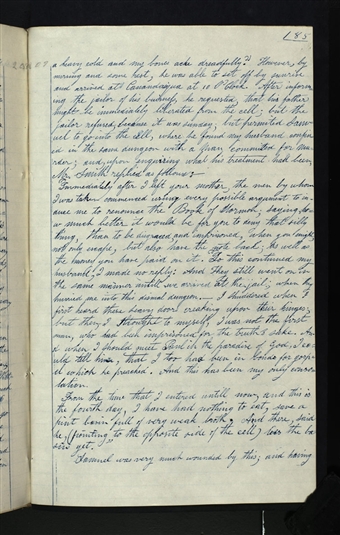 185
a heavy cold and my bones ache dreadfully." However, by
morning and some rest, he was able to set off by sunrise
and arrived at Canandaigua at 10 o'clock. After inform
ing the jailor of his business, he requested, that his father
might be immediately liberated from the cell; but the
jailor refused, because it was sunday; but permitted Sam
uel to go into the cell, where he found my husband confin
ed in the same dungeon with a man committed for mur
der; and upon enquiring what his treatment had been,
Mr. Smith replied as follows:
"Immediately after I left your mother, the men by whom
I was taken commenced using every possible argument to in
duce me to renounce the Book of Mormon, saying, how
much better it would be for you to deny that silly
thing, than to be disgraced and imprisoned, when you might,
not only escape, but also have the note back, as well as
the money you have paid on it. To this continued my
husband, I made no reply: And they still went on in
the same manner untill we arrived at the jail; when they
hurried me into this dismal dungeon.— I shuddered when I
first heard these heavy doors creaking upon their hinges;
but then, I thought to myself, I was not the first
man, who had been imprisoned for the truth's sake. An
d when I should meet Paul in the paradise of God, I co
uld tell him, that I too had been in bonds for gosp
el which he preached. And this has been my only conso
lation.
From the time that I entered untill now, and this is
the fourth day, I have had nothing to eat, save a
pint bason full of very weak broth; And there, said
he, (pointing to the opposite side of the cell) lies the ba
son yet."
Samuel was very much wounded by this; and having